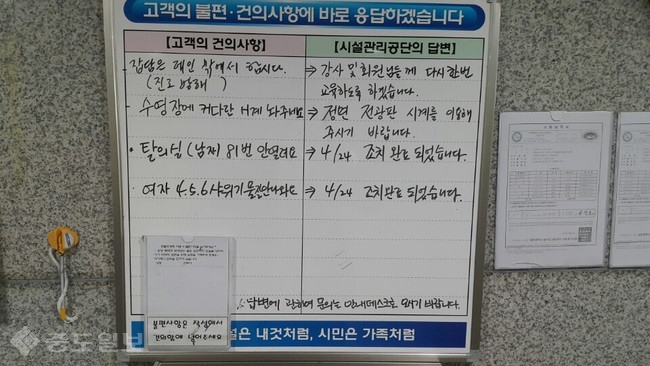 고객의 불편·건의사항에 바로 응답하겠습니다
[고객의 건의사항]
[시설관리공단의 답변]
잡담은 레인 밖에서 합시다.
(진로 방해)
⇒ 강사 및 회원님들께 다시한번
교육하도록 하겠습니다.
수영장에 커다란 시계 놔주세요
⇒ 정면 전광판 시계를 이용해
주시기 바랍니다.
• 탈의실 (남자) 81번 안열려요
⇒ 4/24 조치 완료 되었습니다.
• 여자 4.5.6 샤워기 물 안나와요
⇒ 4/24 조치완료 되었습니다.
※ 답변에 관하여 문의는 안내데스크로 오시기 바랍니다.
불편사항은 작성해서
건의함에 넣어주세요
설은 내것처럼, 시민은 가족처럼
중도일보